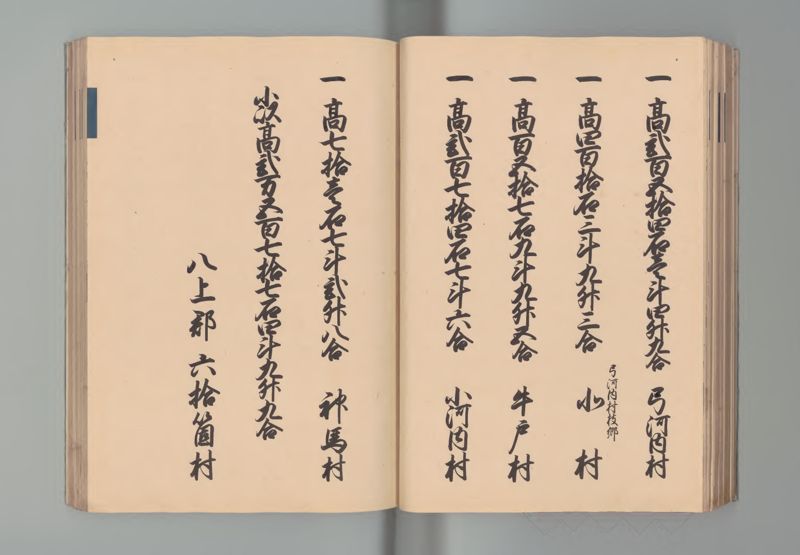 一 高弐百五拾四石壱斗四升九合 弓河内村
弓河内村枝郷
一 高四百拾石三斗九升三合 北村
一 高百五拾七石九斗九升五合 牛戸村
一 高弐百七拾四石七斗六合 小河内村
一 高七拾壱石七斗弐升八合 神馬村
小以高弐万五百七拾七石四斗九升九合
八上郡 六拾箇村